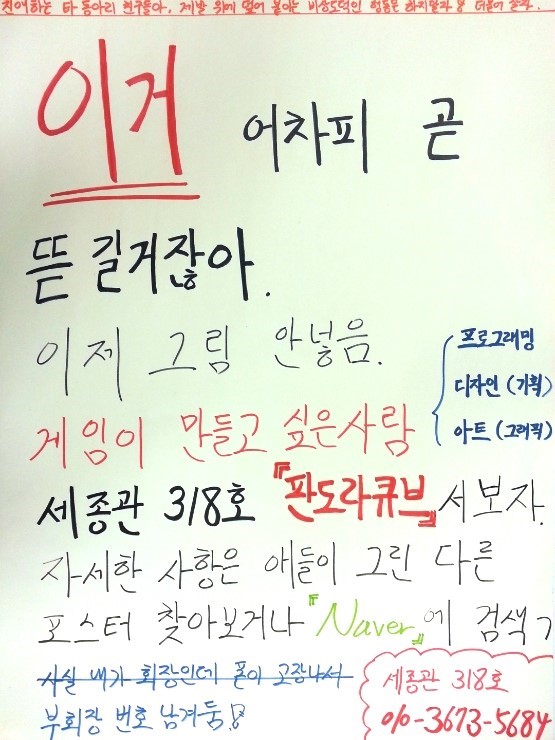 친애하는 타 동아리 친구들아, 제발 위에 덮어 붙이는 비상도덕인 행동은 하지말자
이거 어차피 곧
뜯길거잖아.
이제 그림 안넣음.
프로그래밍
디자인 (기획)
아트 (그래픽)
게임이 만들고 싶은사람
세종관 318호 『판도라큐브』서보자.
자세한 사항은 애들이 그린 다른
포스터 찾아보거나『Naver』에 검색ㄱ
사실 내가 회장인데 폰이 고장나서
부회장 번호 남겨둠
세종관 318호
010-3673-5684